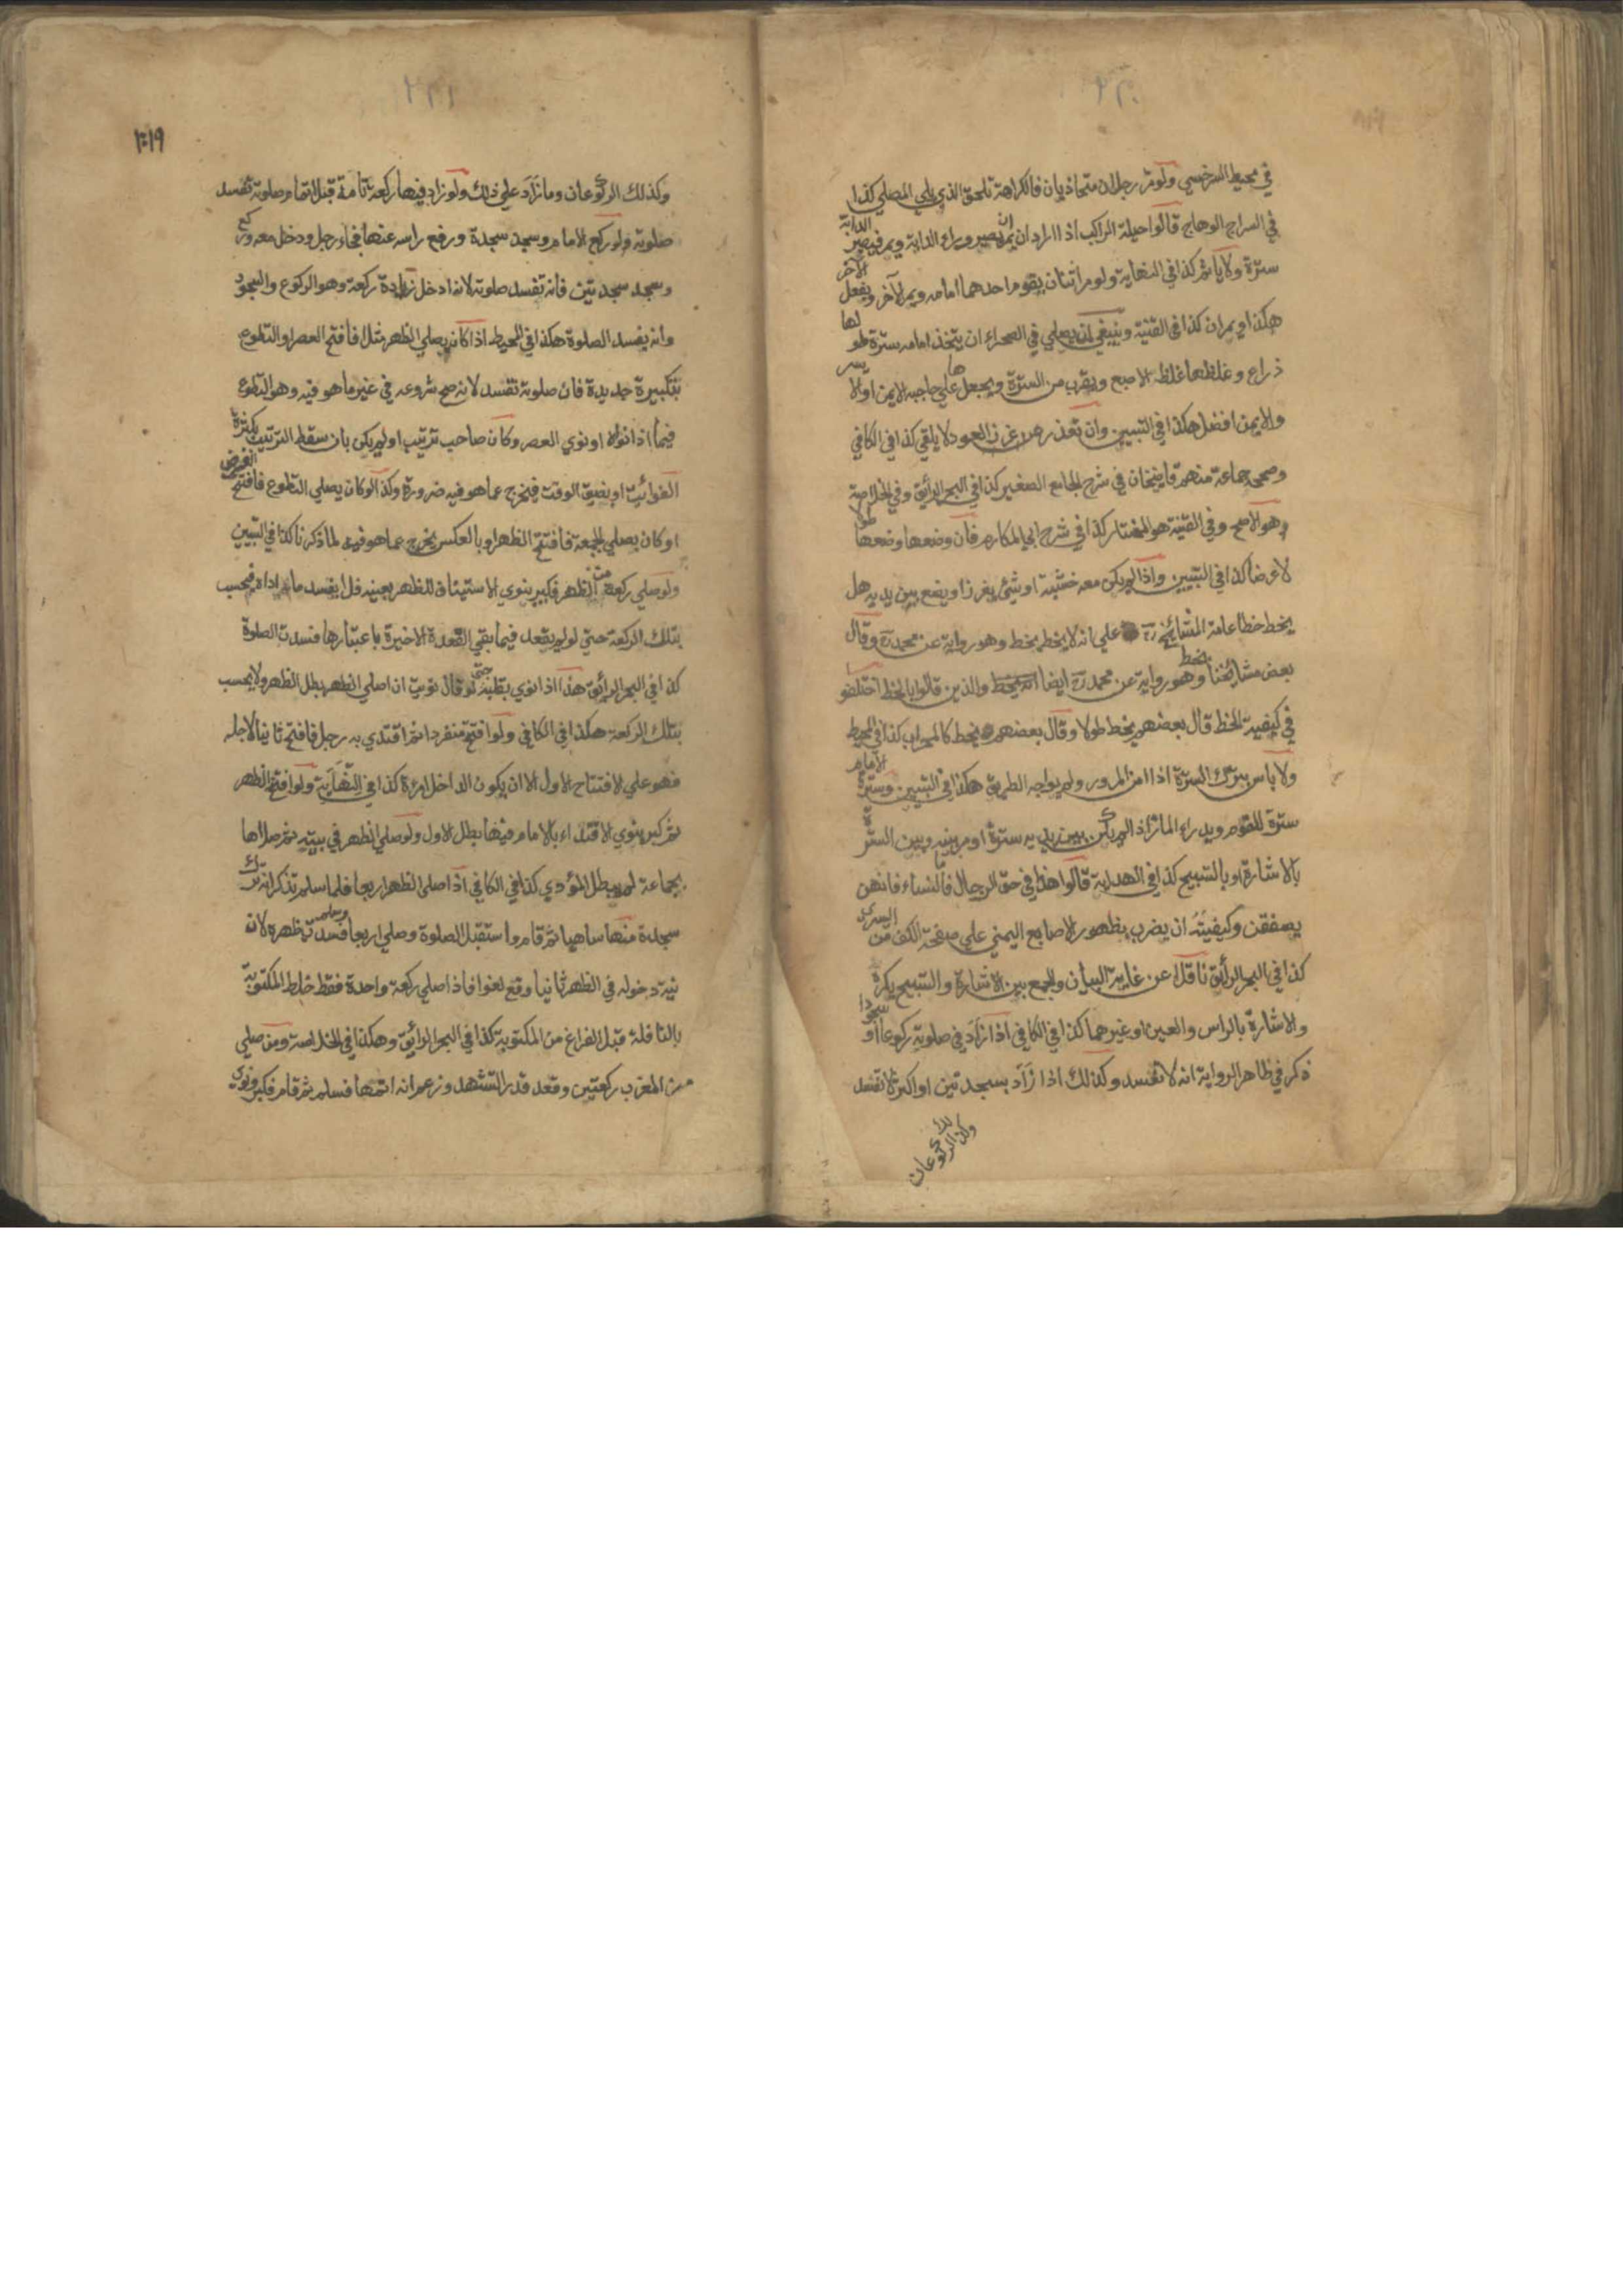 في محيط السرخسي ولو مر رجلان متحاذيان فالكراهة تلحق الذي يلي المصلي كذا
في السراج الوهاج قالوا حيلة الراكب اذا اراد ان يمر ان يصير وراء الدابة ويمر فيصير الدابة
سترة ولا ياثم كذا في النهاية ولو مر اثنان يقوم احدهما امامه ويمر الآخر ويفعل الآخر
هكذا ويمران كذا في القنية وينبغي لمن يصلي في الصحراء ان يتخذ امامه سترة طولها
ذراع وغلظها غلظ الاصبع ويقرب من السترة ويجعلها علي حاجبه الايمن او الايسر
والايمن افضل هكذا في التبيين وان تعذر غرز العود لا يلقي كذا في الكافي
وصححه جماعة منهم قاضيخان في شرح الجامع الصغير كذا في البحر الرائق وفي الخلاصة
وهو الاصح وفي القنية هو المختار كذا في شرح ابي المكارم فان وضعها وضعها طولا
لا عرضا كذا في التبيين واذا لم يكن معه خشبة او شيئ يغرز او يضع بين يديه هل
يخط خطا عامة المشائخ رح علي انه لا يخط بخط وهو رواية عن محمد رح وقال
بعض مشائخنا يخط وهو رواية عن محمد رح ايضا والذين قالوا بالخط اختلفوا
في كيفية الخط قال بعضهم يخط طولا وقال بعضهم يخط كالمحراب كذا في المحيط
ولا باس بترك السترة اذا امن المرور ولم يواجه الطريق هكذا في التبيين وسترة الامام
سترة للقوم ويدراء المار اذا لم يكن بين يديه سترة او مر بينه وبين السترة
بالاشارة او بالتسبيح كذا في الهداية قالوا هذا في حق الرجال فاما النساء فانهن
يصفقن وكيفيته ان يضرب بظهور الاصابع اليمني علي صفحة الكف من اليسرى
كذا في البحر الرائق ناقلا عن غاية البيان والجمع بين الاشارة والتسبيح يكره
والاشارة بالراس والعين او غيرهما كذا في الكافي اذا زاد في صلوته ركوعا او سجودا
ذكر في ظاهر الرواية انه لا تفسد وكذلك اذا زاد بسجدتين او اكثر لا تفسد
وكذلك الركوعان
۱۰۱۹
وكذلك الركوعان وما زاد علي ذلك ولو زاد فيها ركعة تامة قبل اتمام صلوته تفسد
صلوته ولو ركع الامام وسجد سجدة ورفع راسه عنها فجاء رجل ودخل معه وركع
وسجد سجدتين فانه تفسد صلوته لانه ادخل زيادة ركعة وهو الركوع والسجود
وانه يفسد الصلوة هكذا في المحيط اذا كان يصلي الظهر مثلا فافتتح العصر او التطوع
بتكبيرة جديدة فان صلوته تفسد لانه صح شروعه في غير ما هو فيه وهو التطوع
فيما اذا نواه او نوي العصر وكان صاحب ترتيب او لم يكن بان سقط الترتيب بكثرة
الفوائت او بضيق الوقت فيخرج عما هو فيه ضرورة وكذا لو كان يصلي التطوع فافتتح الفرض
او كان يصلي الجمعة فافتتح الظهر او بالعكس يخرج عما هو فيه لما ذكرنا كذا في التبيين
ولو صلي ركعة من الظهر فكبر ينوي الاستيناف للظهر بعينه فلا يفسد ما اداه فيحسب
بتلك الركعة حتي لو لم يقعد فيما بقي القعدة الاخيرة باعتبارها فسدت الصلوة
كذا في البحر الرائق هذا اذا نوي بقلبه حتى لو قال نويت ان اصلي الظهر بطل الظهر ولا يحسب
بتلك الركعة هكذا في الكافي ولو افتتح منفردا ثم اقتدي به رجل فافتتح ثانيا لاجله
فهو علي الافتتاح الاول الا ان يكون الداخل امرءة كذا في النهاية ولو افتتح الظهر
ثم كبر ينوي الاقتداء بالامام فيها بطل الاول ولو صلي الظهر في بيته ثم صلاها
بجماعة لم يبطل المؤدي كذا في الكافي اذا صلي الظهر اربعا فلما سلم تذكر انه ترك
سجدة منها ساهيا ثم قام واستقبل الصلوة وصلي اربعا وسلم فسدت ظهره لان
نية دخوله في الظهر ثانيا وقع لغوا فاذا صلي ركعة واحدة فقط خلط المكتوبة
بالنافلة قبل الفراغ من المكتوبة كذا في البحر الرائق وهكذا في الخلاصة ومن صلي
من المغرب ركعتين وقعد قدر التشهد وزعم انه اتمها فسلم ثم قام فكبر ونوى